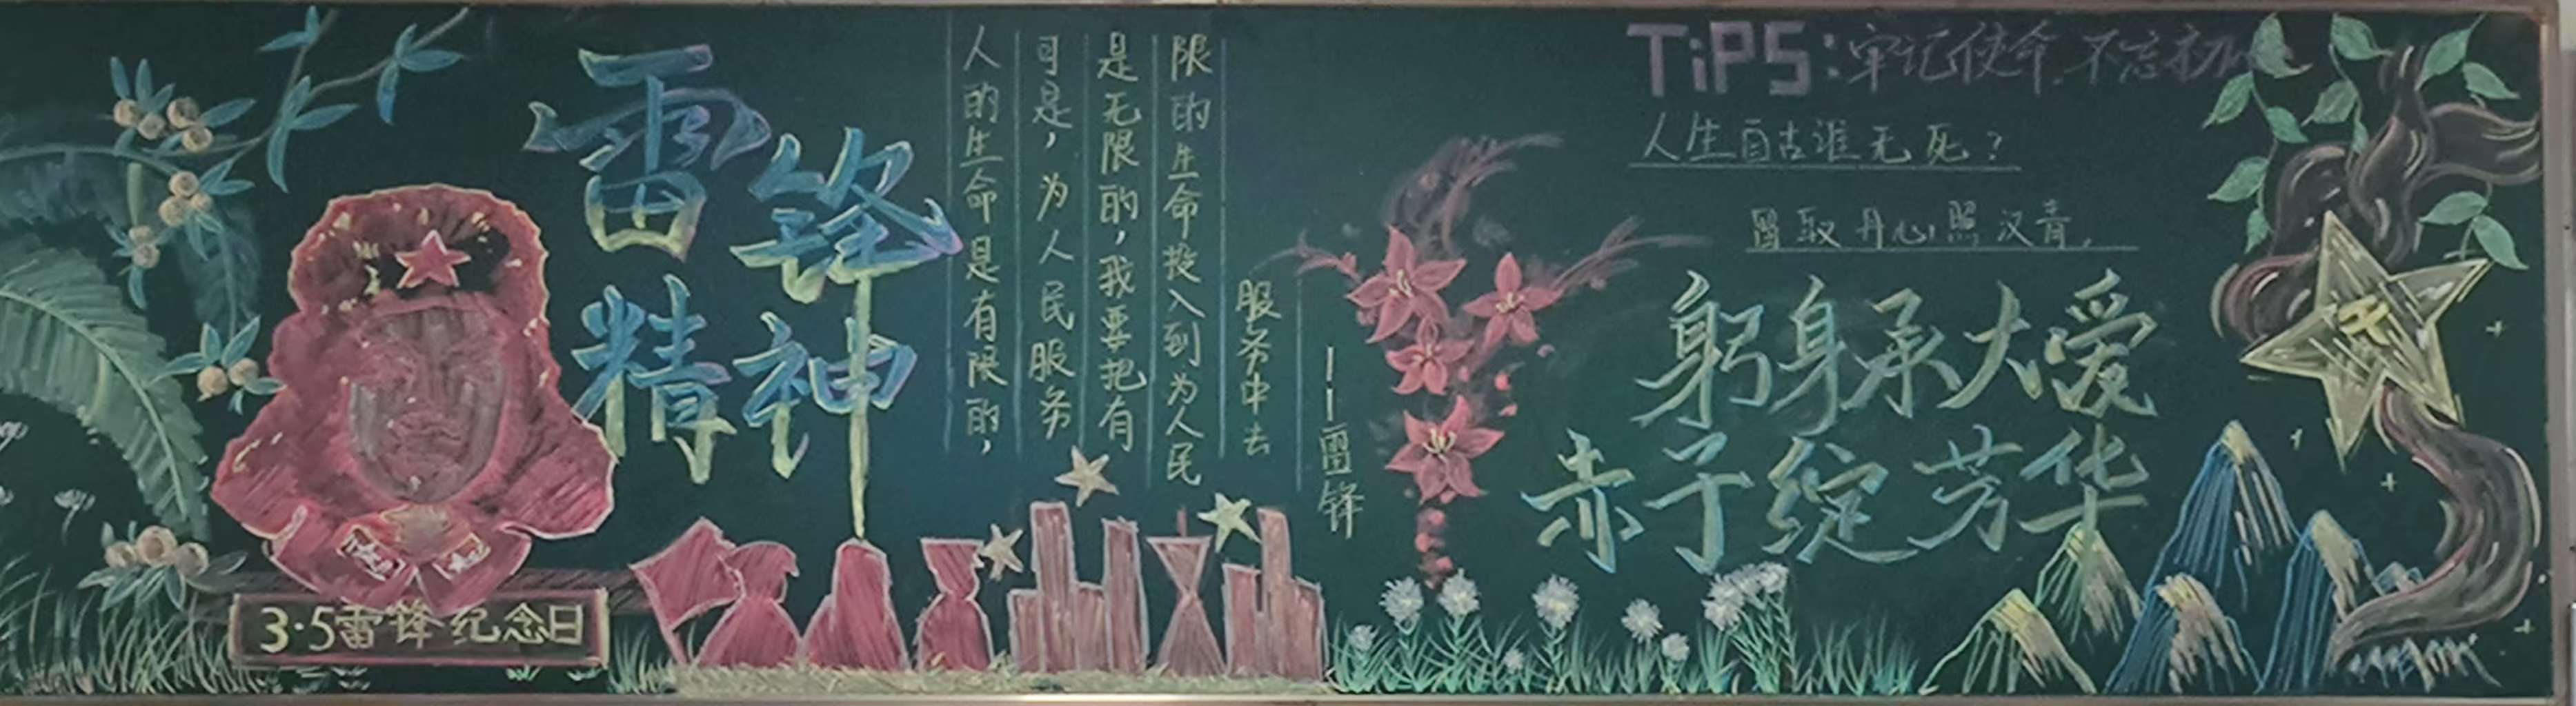 雷锋
精神
人的生命是有限的，
可是，为人民服务
是无限的，我要把有
限的生命投入到为人民
服务中去
——雷锋
3·5雷锋纪念日
TiPS：牢记使命 不忘初心
人生自古谁无死？
留取丹心照汉青。
躬身承大爱
赤子绽芳华